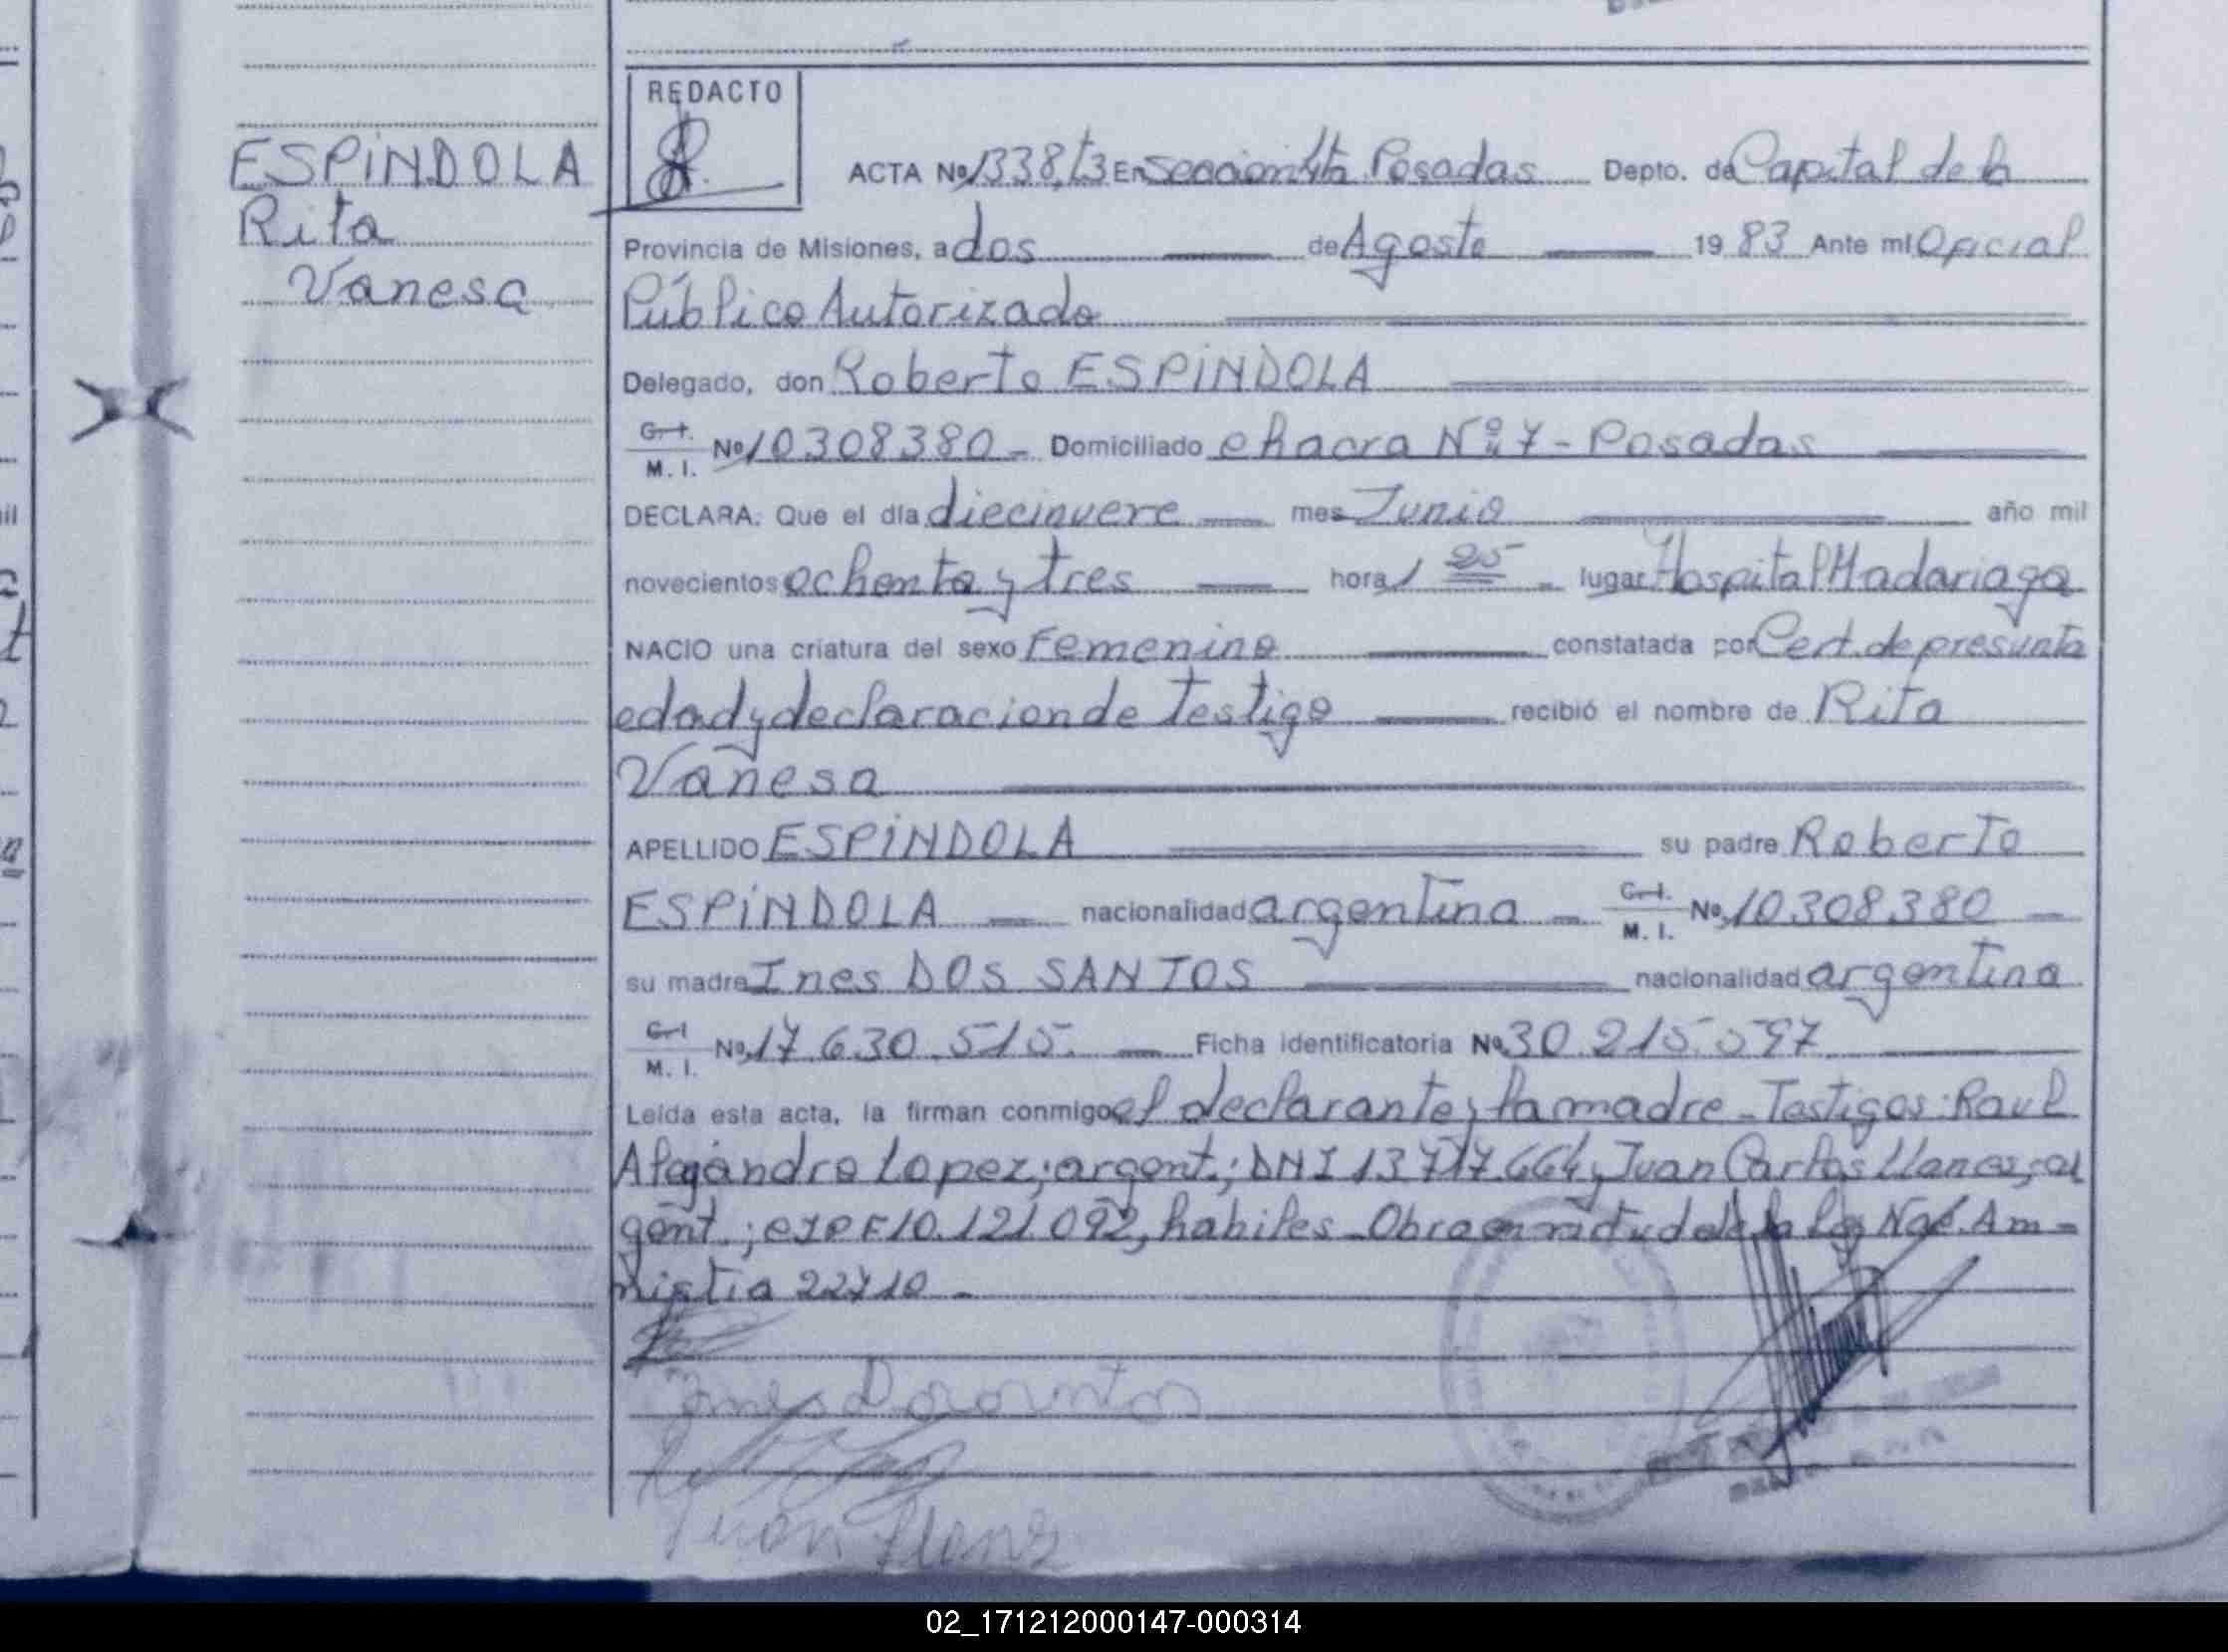 REDACTO
ESPINDOLA
Rita
Vanesa
ACTA Nº 1338, t3 En sección 4ta Posadas Depto. de Capital de la
Provincia de Misiones, a dos de Agosto 1983 Ante mí Oficial
Público Autorizado
Delegado, don Roberto ESPINDOLA
C.I. M. I. Nº 10308380 - Domiciliado chacra Nº 7 - Posadas
DECLARA: Que el día diecinueve mes Junio año mil
novecientos ochenta y tres hora 1 25 - lugar Hospital Madariaga
NACIO una criatura del sexo Femenino constatada por Cert. de presunta
edad y declaracion de Testigo recibió el nombre de Rita
Vanesa
APELLIDO ESPINDOLA su padre Roberto
ESPINDOLA nacionalidad argentina - C.I. M. I. Nº 10308380
su madre Ines DOS SANTOS nacionalidad argentina
C.I. M. I. Nº 17.630.515. Ficha identificatoria Nº 30.215.597
Leída esta acta, la firman conmigo el declarante y la madre - Testigos: Raul
Alejandro Lopez; argent.; DNI 13.717.664 y Juan Carlos Llanes; ar
gent.; CIPF 10.121.092, habiles - Obra en virtud de la Ley Nac. Am-
nistia 22710 -
Ines Dosantos
Juan Llanes
02_171212000147-000314